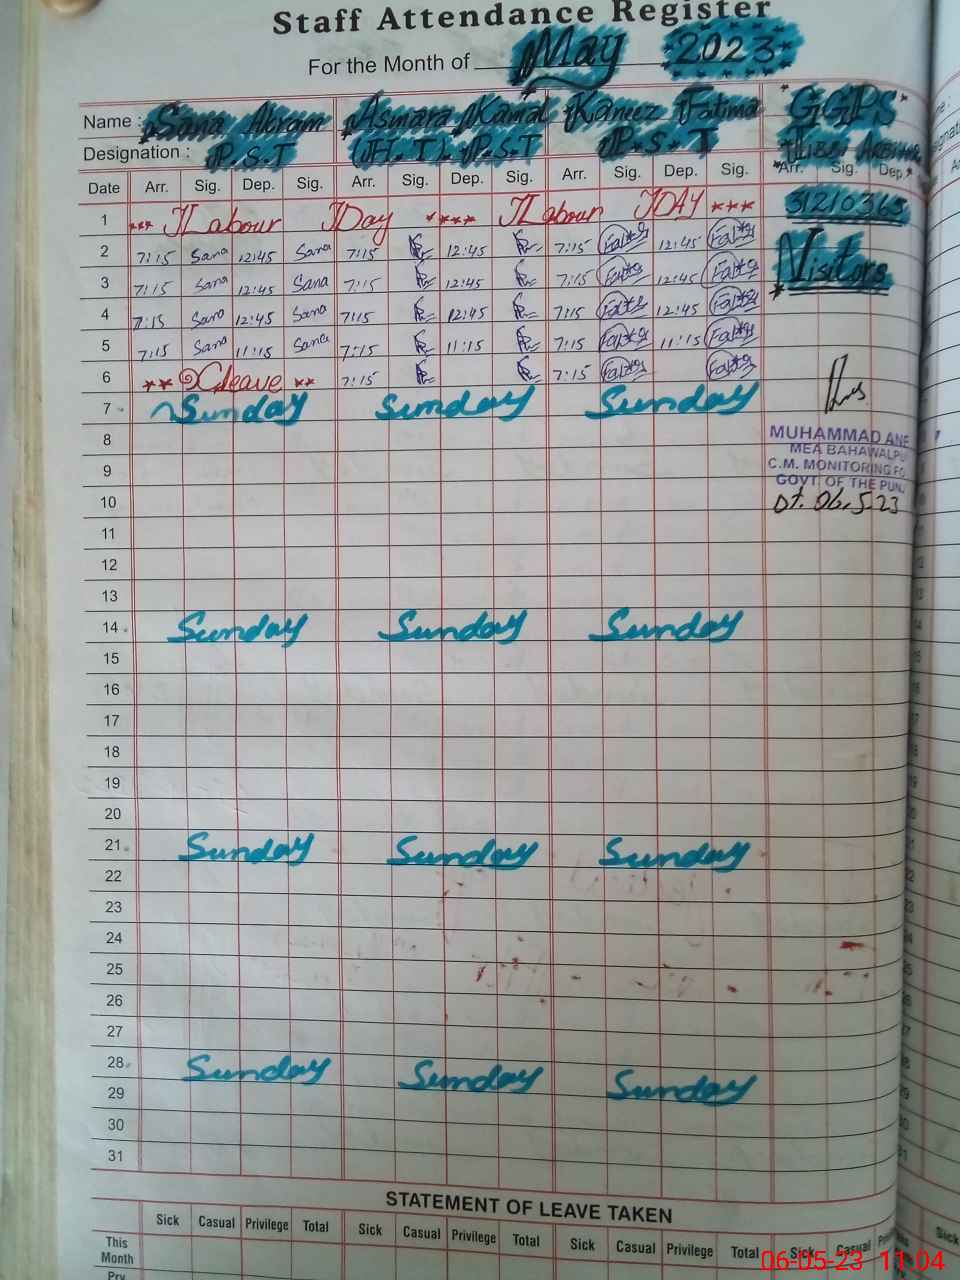 Staff Attendance Register
For the Month of May 2023
Name : Sana Akram Asmara Kamal Kaneez Fatima GGPS
Designation : P.S.T (H.T). P.S.T P.S.T Tibbi
Date Arr. Sig. Dep. Sig. Arr. Sig. Dep. Sig. Arr. Sig. Dep. Sig. Arr. Sig. Dep.
1 *** Labour Day **** Labour DAY *** 31210365
2 7:15 Sana 12:45 Sana 7:15 12:45 7:15 12:45 Visitors
3 7:15 Sana 12:45 Sana 7:15 12:45 7:15 12:45
4 7:15 Sana 12:45 Sana 7:15 12:45 7:15 12:45
5 7:15 Sana 11:15 Sana 7:15 11:15 7:15 11:15
6 ** C leave ** 7:15 7:15
7 Sunday Sunday Sunday
8 MUHAMMAD ANE
9 MEA BAHAWALPU
C.M. MONITORING FO
GOVT. OF THE PUN
10 Dt. 06.5.23
11
12
13
14 Sunday Sunday Sunday
15
16
17
18
19
20
21 Sunday Sunday Sunday
22
23
24
25
26
27
28 Sunday Sunday Sunday
29
30
31
STATEMENT OF LEAVE TAKEN
Sick Casual Privilege Total Sick Casual Privilege Total Sick Casual Privilege Total Sick Casual
This
Month
Prv.
06-05-23 11:04